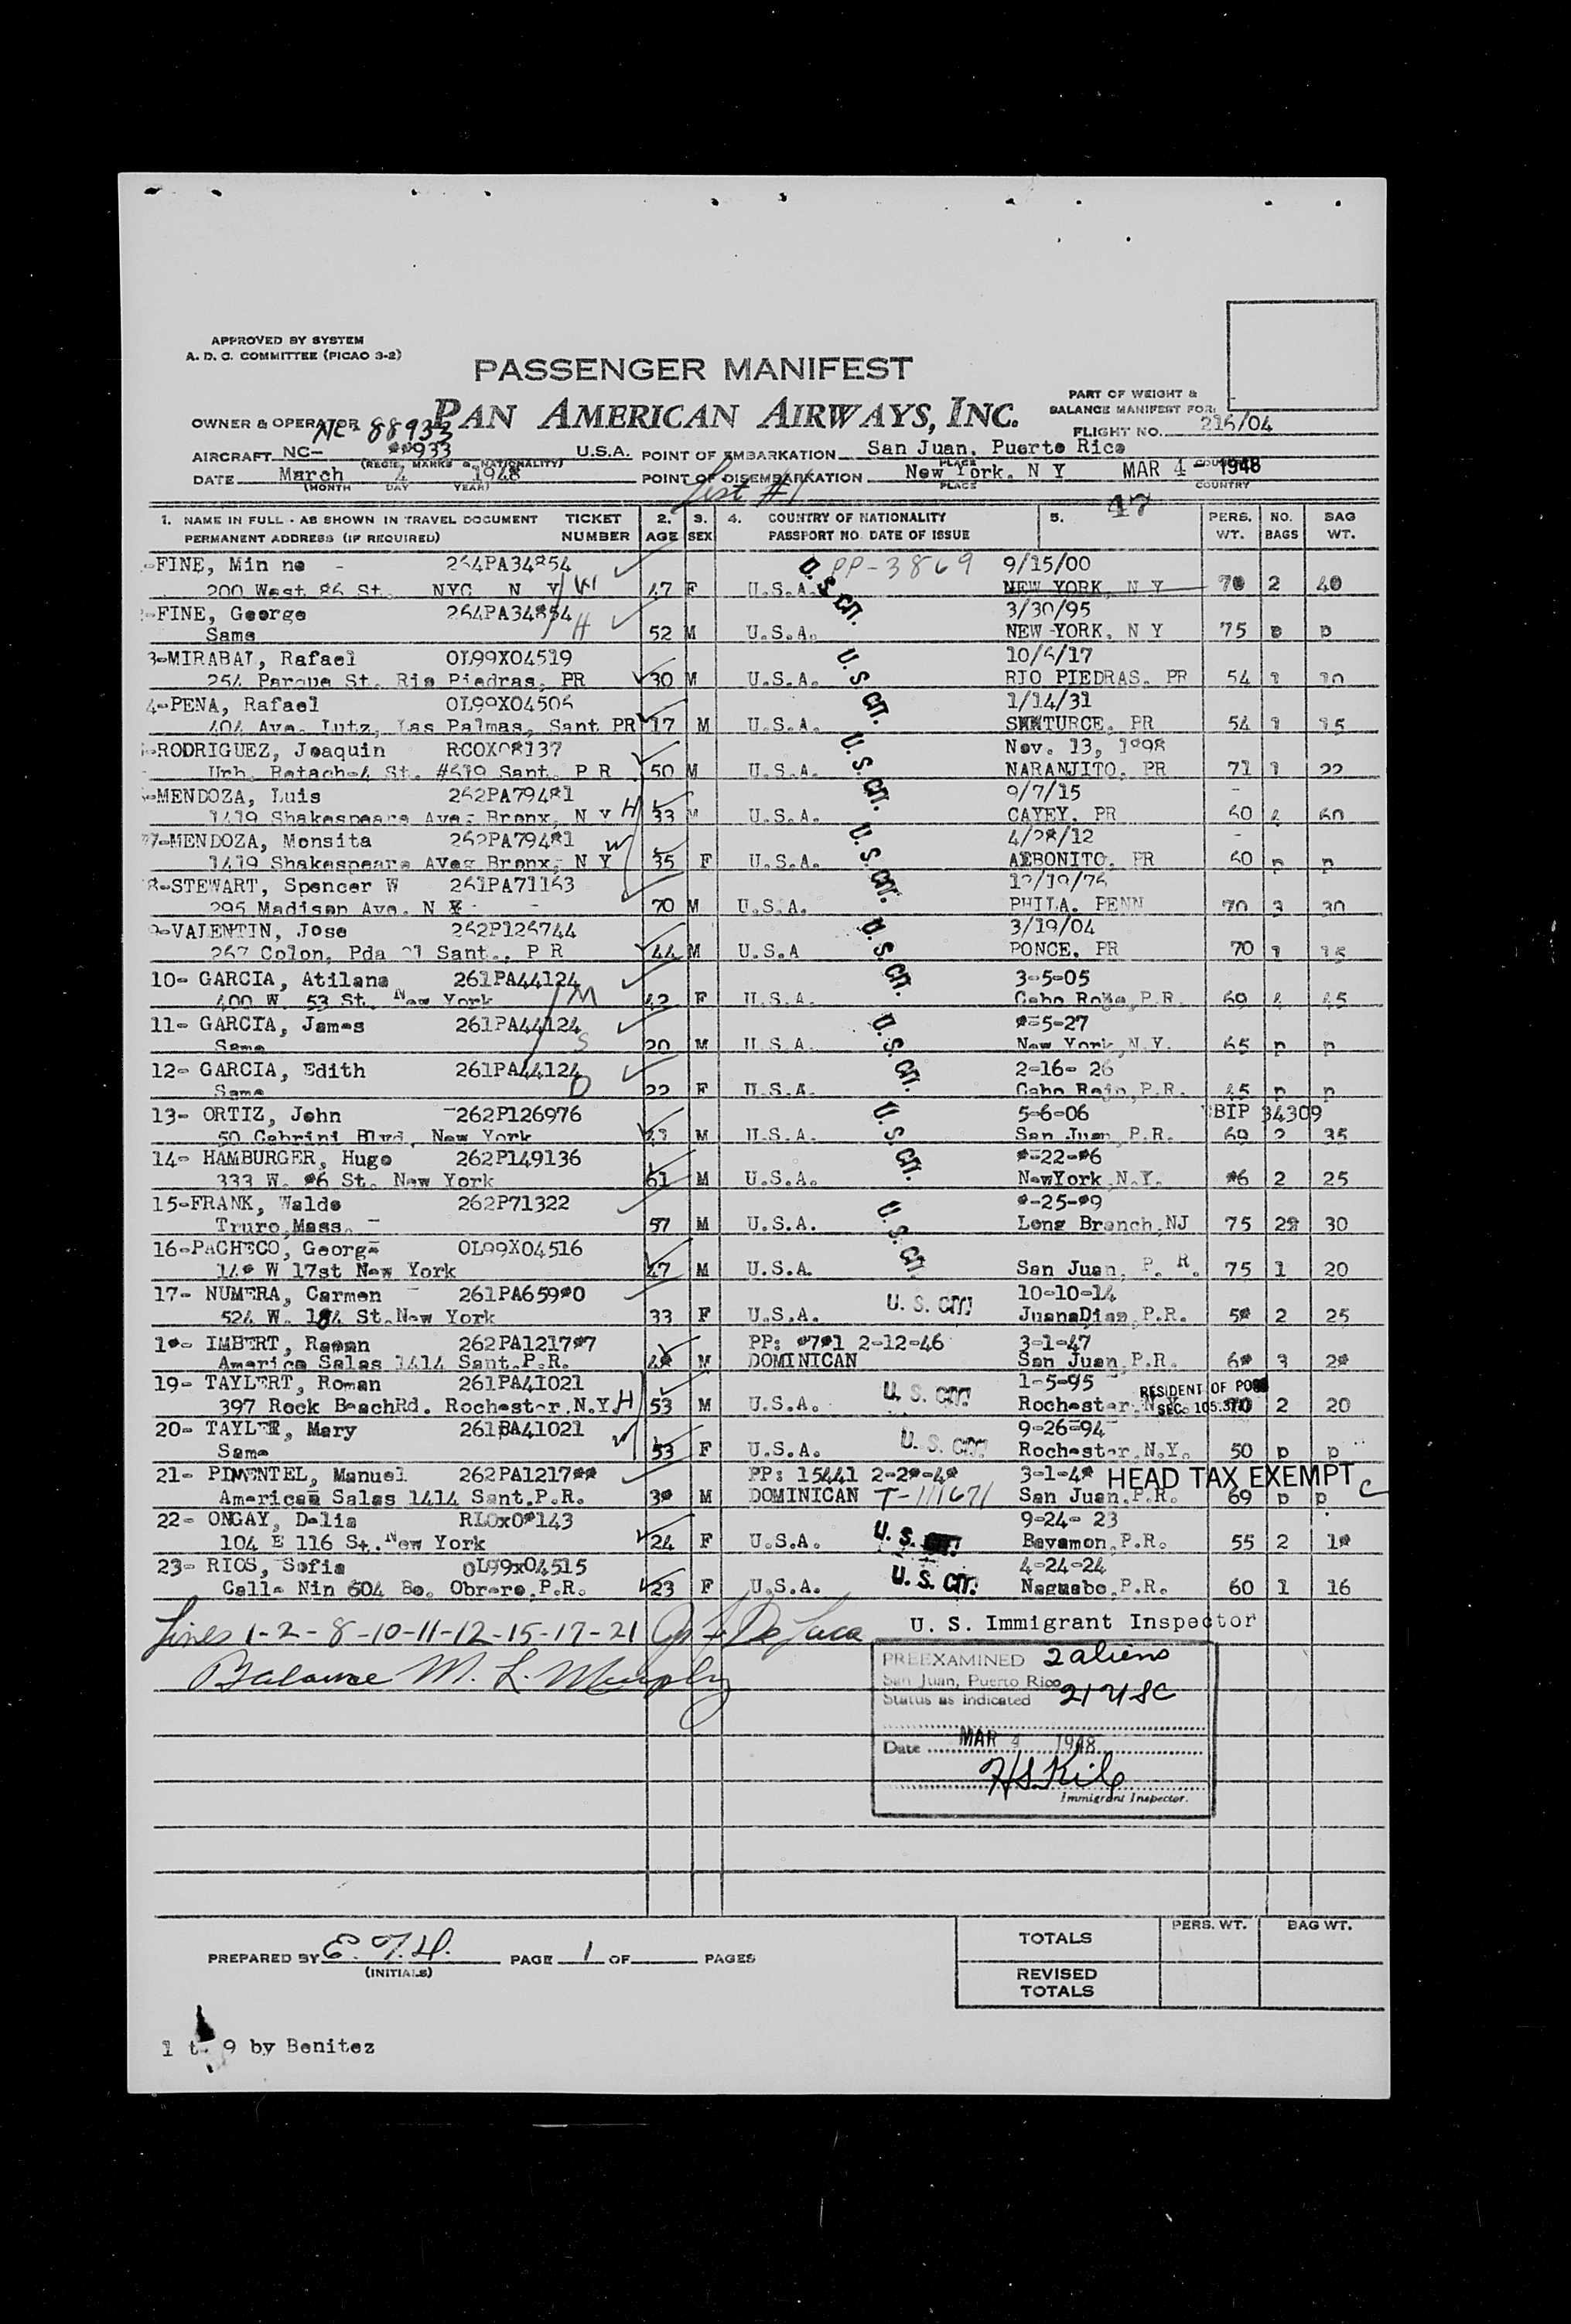 APPROVED BY SYSTEM
A. D. C. COMMITTEE (PICAO 3-2)
PASSENGER MANIFEST
PART OF WEIGHT &
BALANCE MANIFEST FOR:
OWNER & OPERATOR PAN AMERICAN AIRWAYS, INC.
NC-88933
FLIGHT NO. 216/04
AIRCRAFT NC- **933 U.S.A. POINT OF EMBARKATION San Juan, Puerto Rico
(REGIS. MARKS & NATIONALITY) PLACE COUNTRY
DATE March 4 1948 POINT OF DISEMBARKATION New York, N Y MAR 4 - 1948
(MONTH DAY YEAR) PLACE COUNTRY
List #1
47
1. NAME IN FULL - AS SHOWN IN TRAVEL DOCUMENT TICKET 2. 3. 4. COUNTRY OF NATIONALITY 5. PERS. NO. BAG
PERMANENT ADDRESS (IF REQUIRED) NUMBER AGE SEX PASSPORT NO. DATE OF ISSUE WT. BAGS WT.
-FINE, Min ne - 264PA34854 PP-3869 9/15/00
200 West 86 St. NYC N Y W 47 F U.S.A. U.S. CIT. NEW YORK, N Y 70 2 40
-FINE, George 264PA34854 3/30/95
Same H 52 M U.S.A. NEW YORK, N Y 75 p p
3-MIRABAL, Rafael OL99X04519 10/6/17
254 Parque St. Rio Piedras, PR 30 M U.S.A. U.S. CIT. RIO PIEDRAS, PR 54 1 10
4-PENA, Rafael OL99X04506 1/14/31
404 Ave. Lutz, Las Palmas, Sant PR 17 M U.S.A. SANTURCE, PR 54 1 15
-RODRIGUEZ, Joaquin RCOX08137 Nov. 13, 1898
Urb. Betach-4 St. #619 Sant. P R 50 M U.S.A. U.S. CIT. NARANJITO, PR 71 1 22
-MENDOZA, Luis 262PA79481 9/7/15
1419 Shakespeare Ave; Bronx, N Y H 33 M U.S.A. CAYEY, PR 60 4 60
7-MENDOZA, Monsita 262PA79481 4/28/12
1419 Shakespeare AVe; Bronx, N Y W 35 F U.S.A. U.S. CIT. AIBONITO, PR 60 p p
8-STEWART, Spencer W 261PA71163 12/19/76
295 Madison Ave. N Y 70 M U.S.A. PHILA. PENN 70 3 30
9-VALENTIN, Jose 262P126744 3/19/04
267 Colon, Pda 21 Sant., P R 44 M U.S.A U.S. CIT. PONCE, PR 70 1 15
10- GARCIA, Atilana 261PA44124 3-5-05
400 W. 53 St. New York M 42 F U.S.A. Cabo Rojo, P.R. 69 4 45
11- GARCIA, James 261PA44124 *-5-27
Same S 20 M U.S.A. U.S. CIT. New York, N.Y. 65 p p
12- GARCIA, Edith 261PA44124 2-16- 26
Same D 22 F U.S.A. Cabo Rojo, P.R. 45 p p
13- ORTIZ, John 262P126976 5-6-06 BIP 34309
50 Cabrini Blvd, New York M U.S.A. U.S. CIT. San Juan, P.R. 69 2 35
14- HAMBURGER, Hugo 262P149136 *-22-*6
333 W. *6 St. New York 61 M U.S.A. NewYork, N.Y. *6 2 25
15-FRANK, Waldo 262P71322 *-25-*9
Truro, Mass. 57 M U.S.A. U.S. CIT. Long Branch, NJ 75 2 30
16-PACHECO, George OL99X04516
14* W 17st New York 47 M U.S.A. San Juan, P. R. 75 1 20
17- NUMERA, Carmen 261PA659*0 10-10-14
524 W. 184 St. New York 33 F U.S.A. U. S. CIT. JuanaDiaz, P.R. 5* 2 25
1*- IMBERT, Raman 262PA1217*7 PP: *7*1 2-12-46 3-1-47
America Salas 1414 Sant. P.R. 4* M DOMINICAN San Juan, P.R. 6* 3 2*
19- TAYLERT, Roman 261PA41021 1-5-95 RESIDENT OF
397 Rock BeachRd. Rochester.N.Y. H 53 M U.S.A. U. S. CIT. Rochester, N.Y. SEC. 105. 70 2 20
20- TAYLER, Mary 261PA41021 9-26-94
Same W 53 F U.S.A. U. S. CIT. Rochester, N.Y. 50 p p
21- PIMENTEL, Manuel 262PA1217** PP: 15441 2-2*-4* 3-1-4* HEAD TAX EXEMPT
American Salas 1414 Sant. P.R. 3* M DOMINICAN T-111671 San Juan, P.R. 69 p p C
22- ONGAY, Dalia RLOx0*143 9-24- 23
104 E 116 St. New York 24 F U.S.A. U. S. CIT. Bayamon, P.R. 55 2 1*
23- RIOS, Sofia OL99x04515 4-24-24
Calle Nin 604 Bo. Obrero, P.R. 23 F U.S.A. U. S. CIT. Naguabo, P.R. 60 1 16
Lines 1-2-8-10-11-12-15-17-21 De Luca U. S. Immigrant Inspector
Balance M. L. Murphy
PREEXAMINED 2 aliens
San Juan, Puerto Rico
Status as indicated 21 USC
Date MAR 4 1948
Immigrant Inspector.
PERS. WT. BAG WT.
TOTALS
PREPARED BY PAGE 1 OF PAGES
(INITIALS)
REVISED
TOTALS
1 to 9 by Benitez